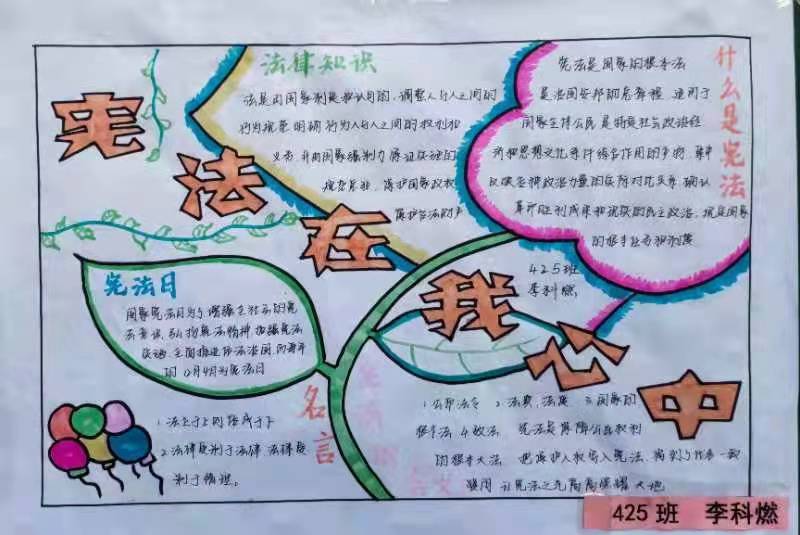 宪法在我心中
法律知识
法是由国家制定或认可的,调整人与人之间的
行为规范 明确 行为人与人之间的权利和
义务 并由国家强制力 保证实施的
规范总和, 维护国家政权
维护合法财产
什么是宪法
宪法是国家的根本法
是治国安邦的总章程 适用于
国家全体公民 是特定社会政治经
济和思想文化条件综合作用的产物 集中
反映各种政治力量的实际对比关系 确认
革命胜利成果和现实的民主政治 规定国家
的根本任务和制度
宪法日
国家宪法日为了增强全社会的宪
法意识 弘扬宪法精神 加强宪法
实施 全面推进依法治国
的12月4日为宪法日
425班
李科燃
名言
1 法立于上 则俗成于下
2 法律疑
制于情理。
1 公布法令 2 法典,法度 3 国家的
根本法 4 效法 宪法是保障公民权利
的根本大法 把维护人权写入宪法
让宪法之光 大地
425班 李科燃